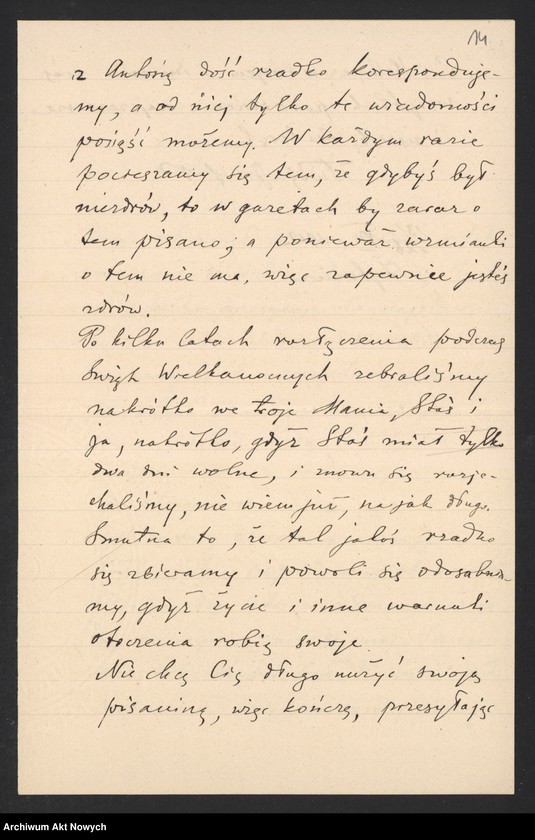 14
z Antosią dość rzadko koresponduje-
my, a od niej tylko te wiadomości
posiąść możemy. W każdym razie
pocieszamy się tem, że gdybyś był
niezdrów, to w gazetach by zaraz o
tem pisano; a ponieważ wzmianki
o tem nie ma, więc zapewnie jesteś
zdrów.
Po kilku latach rozłączenia podczas
Świąt Wielkanocnych zebraliśmy
nakrótko we troje Mania, Staś i
ja, nakrótko, gdyż Staś miał tylko
dwa dni wolne, i znowu się rozje-
chaliśmy, nie wiem już, na jak długo.
Smutna to, że tak jakoś rzadko
się zbieramy i powoli się odosabnia-
my, gdyż życie i inne warunki
otoczenia robią swoje.
Nie chcę Cię długo nużyć swoją
pisaniną, więc kończę, przesyłając
Archiwum Akt Nowych